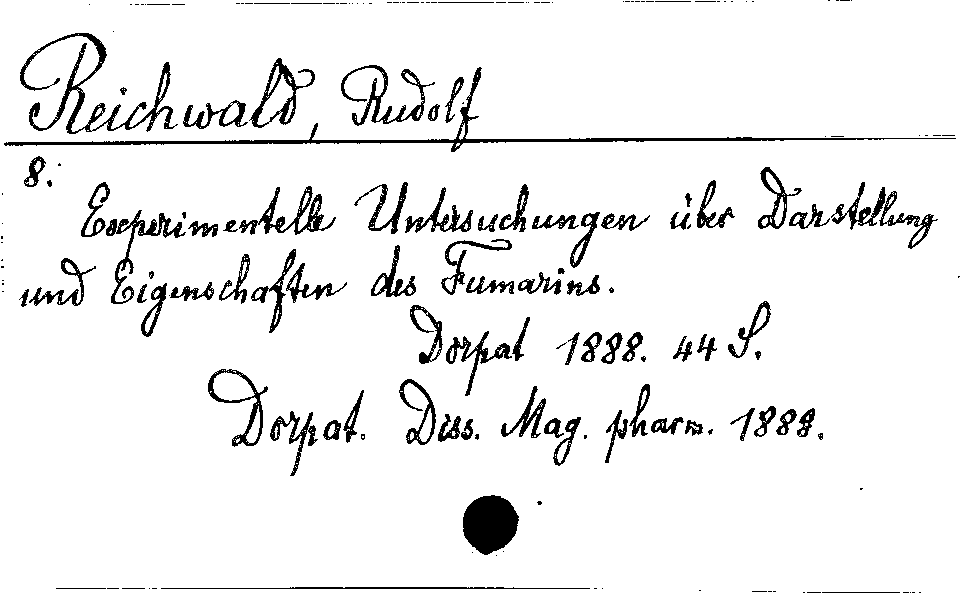 Reichwald, Rudolf
8.
Experimentelle Untersuchungen über Darstellung
und Eigenschaften des Fumarins.
Dorpat 1888. 44 S.
Dorpat. Diss. Mag. pharm. 1888.